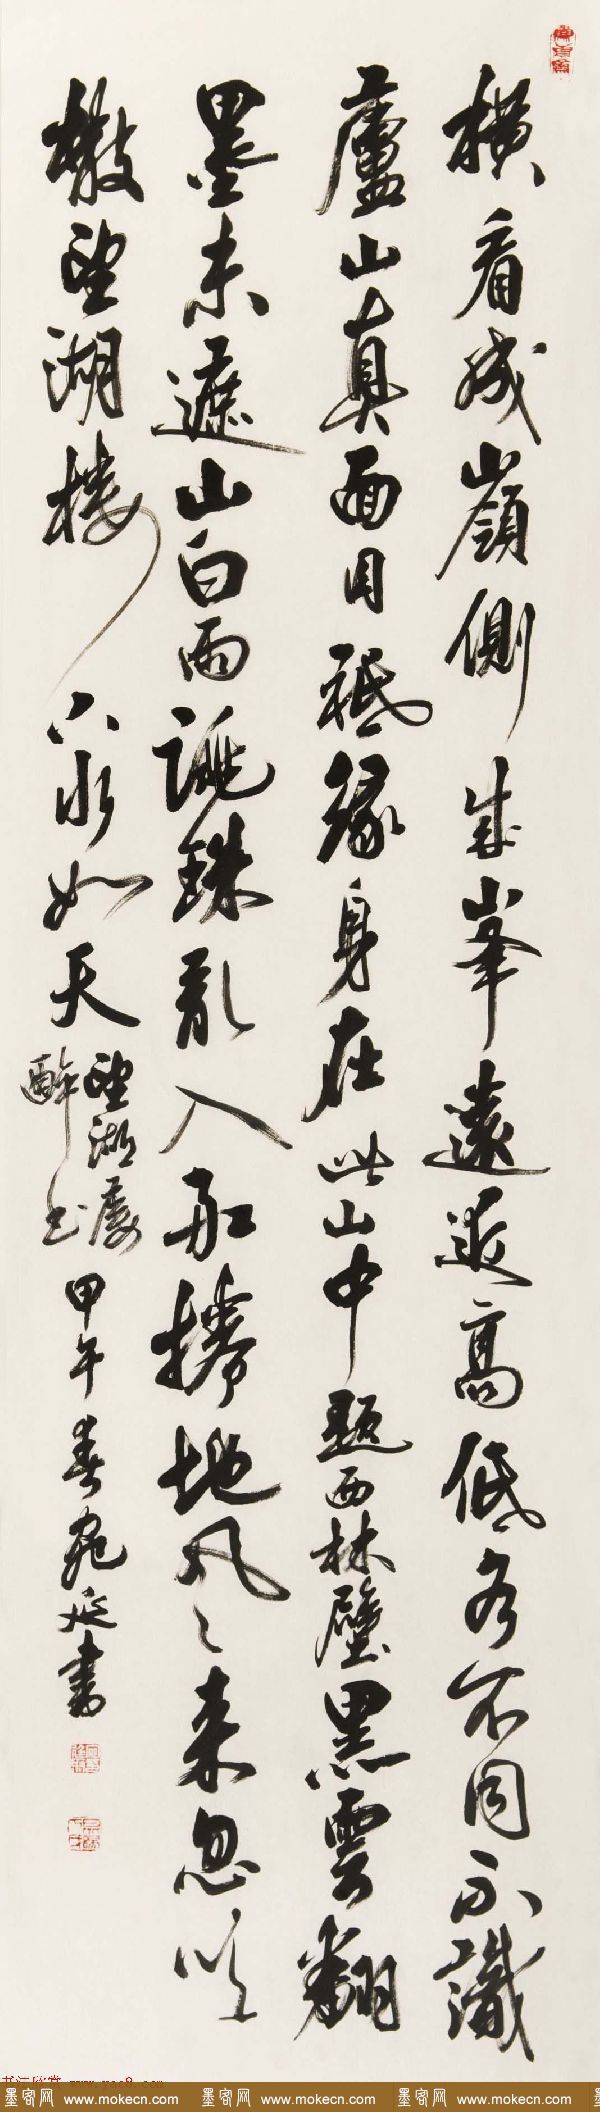 橫看成嶺側成峯遠近高低各不同不識
廬山真面目祗緣身在此山中題西林壁黑雲翻
墨未遮山白雨跳珠亂入船捲地風〻來忽吹
散望湖樓下水如天
望湖樓
醉書
甲午春書
墨客网 www.mokecn.com 墨客网 www.mokecn.com 墨客网 www.mokecn.com